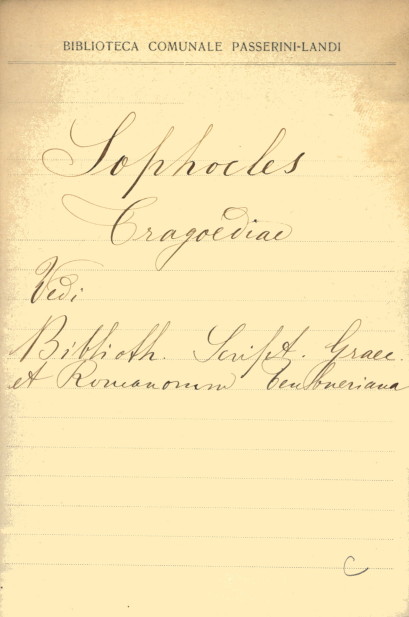 BIBLIOTECA COMUNALE PASSERINI-LANDI
Sophocles
Tragoediae
Vedi
Biblioth. Script. Graec.
et Romanorum Teubneriana
C